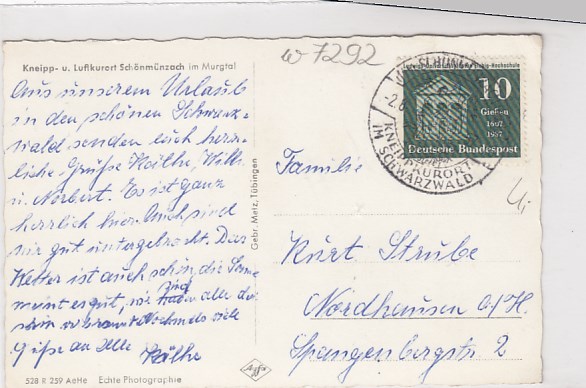 Kneipp- u. Luftkurort Schönmünzach im Murgtal
Aus unserem Urlaub
in den schönen Schwarz-
wald senden Euch herz-
liche Grüße Käthe, Willi
u. Norbert. Es ist ganz
herrlich hier. Auch sind
wir gut untergebracht. Das
Wetter ist auch schön, die Sonne
meint es gut, wir sind alle
schon verbrannt. Nochmals viele
Grüße an Alle
Käthe
528 R 259 AeHe Echte Photographie
Gebr. Metz, Tübingen
Agfa
w 7292
10
Gießen
1607
1957
Deutsche Bundespost
KNEIPPKURORT
IM SCHWARZWALD
Familie
Kurt Strube
Nordhausen a/H.
Spangenbergstr. 2